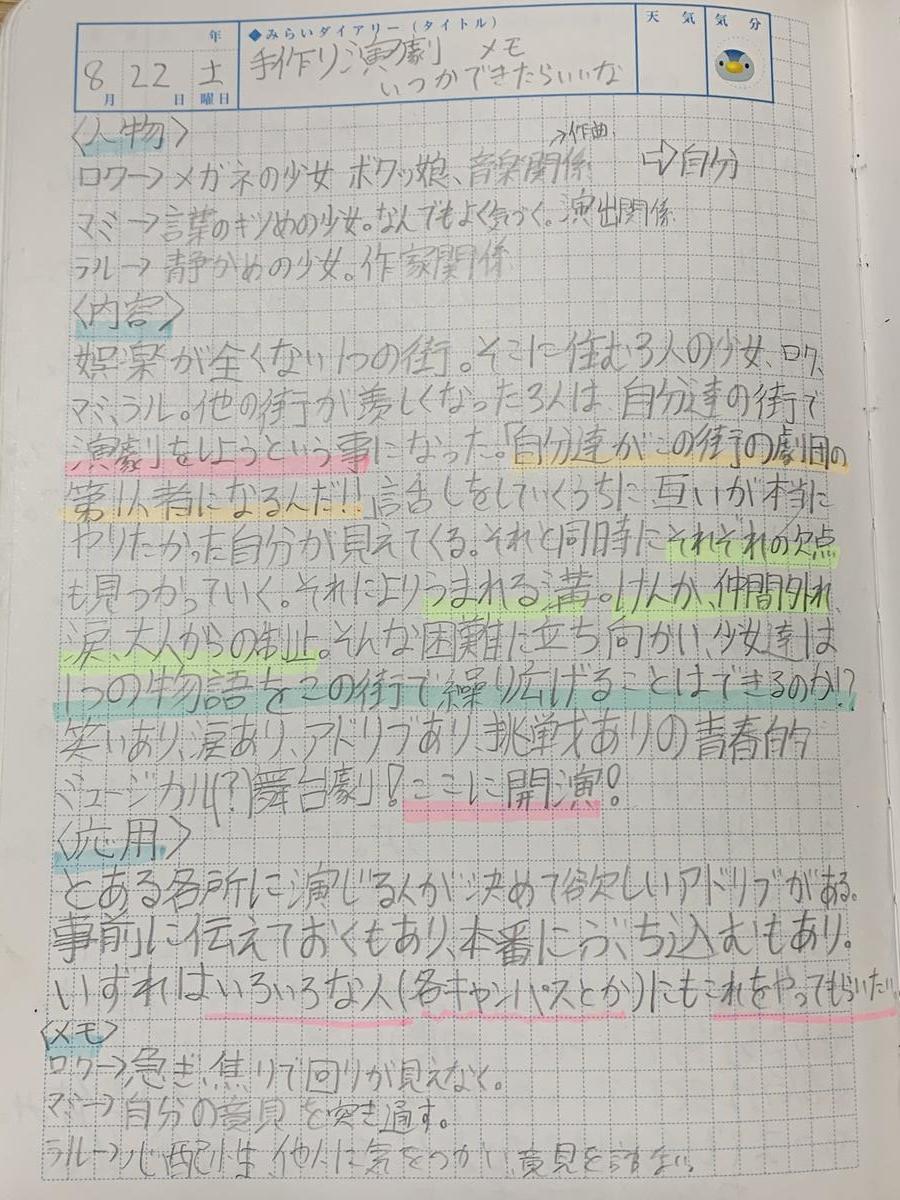 年 ◆みらいダイアリー(タイトル) 天気 気分
8月22日土曜日
手作り演劇 メモ
いつかできたらいいな
〈人物〉
→作曲
ロク→メガネの少女 ボクッ娘、音楽関係 ⇨自分
マミ→言葉のキツめの少女。なんでもよく気づく。演出関係
ラル→静かめの少女。作家関係
〈内容〉
娯楽が全くない1つの街。そこに住む3人の少女、ロク、
マミ、ラル。他の街が羨しくなった3人は、自分達の街で
演劇をしようという事になった。「自分達がこの街の劇団の
第1人者になるんだ!!」話しをしていくうちに互いが本当に
やりたかった自分が見えてくる。それと同時にそれぞれの欠点
も見つかっていく。それによりうまれる溝。けんか、仲間外れ、
涙、大人からの制止。そんな困難に立ち向かい、少女達は
1つの物語をこの街で繰り広げることはできるのか!?
笑いあり、涙あり、アドリブあり、挑戦ありの青春的
ミュージカル(?)舞台劇!ここに開演!
〈応用〉
とある各所に演じる人が決めて欲しいアドリブがある。
事前に伝えておくもあり、本番にぶち込むもあり。
いずれはいろいろな人(各キャンパスとか)にもこれをやってもらいたい
〈メモ〉
ロク→急ぎ、焦りで回りが見えなく。
マミ→自分の意見を突き通す。
ラル→心配性、他人に気をつかい、意見を